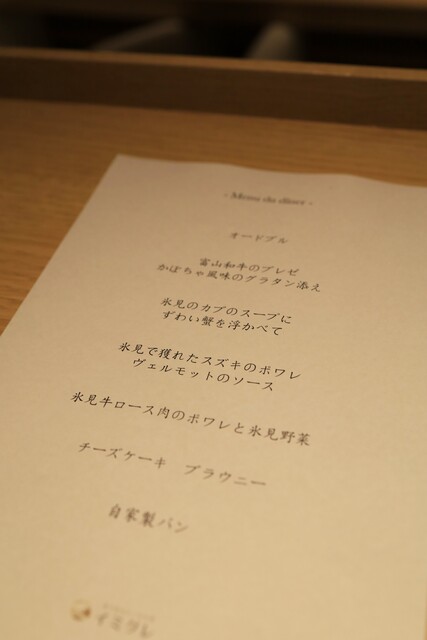 - Menu du dîner -
オードブル
富山和牛のブレゼ
かぼちゃ風味のグラタン添え
氷見のカブのスープに
ずわい蟹を浮かべて
氷見で獲れたスズキのポワレ
ヴェルモットのソース
氷見牛ロース肉のポワレと氷見野菜
チーズケーキ　ブラウニー
自家製パン